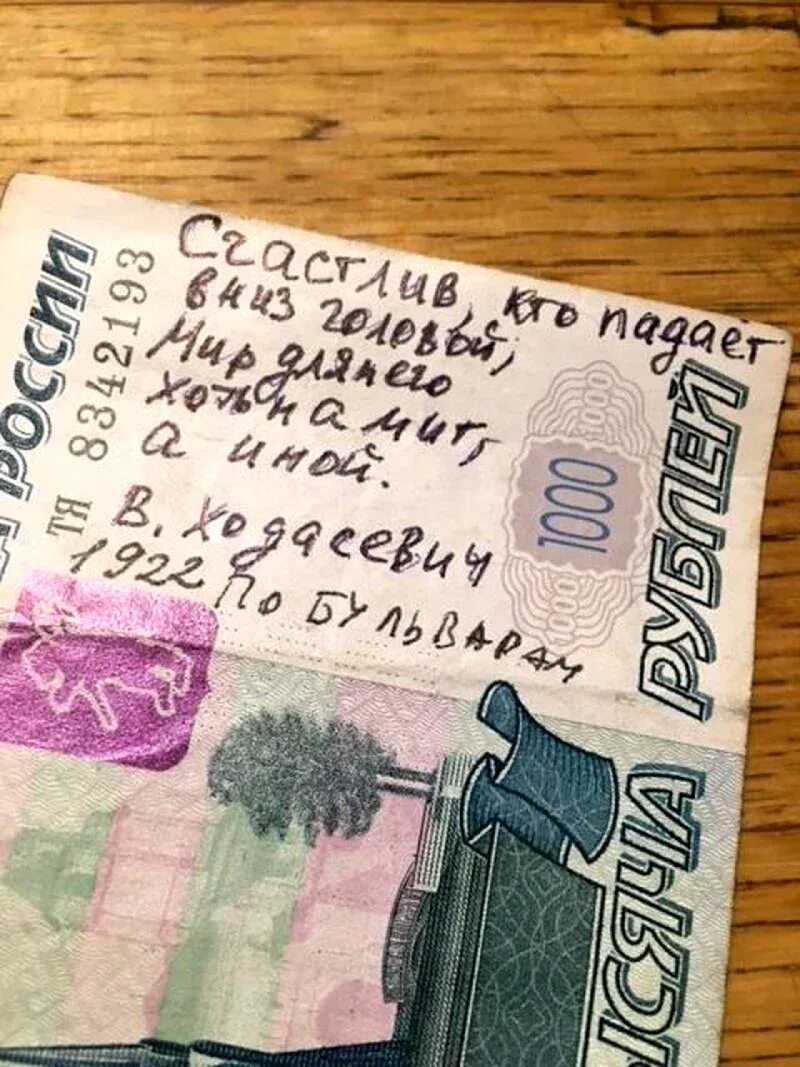 Счастлив, кто падает
вниз головой,
Мир для него
хоть на миг,
а иной.
В. Ходасевич
1922 По БУЛЬВАРАМ
РОССИИ
ТЯ 8342193
1000
1000
000
РУБЛЕЙ
ЫСЯЧА